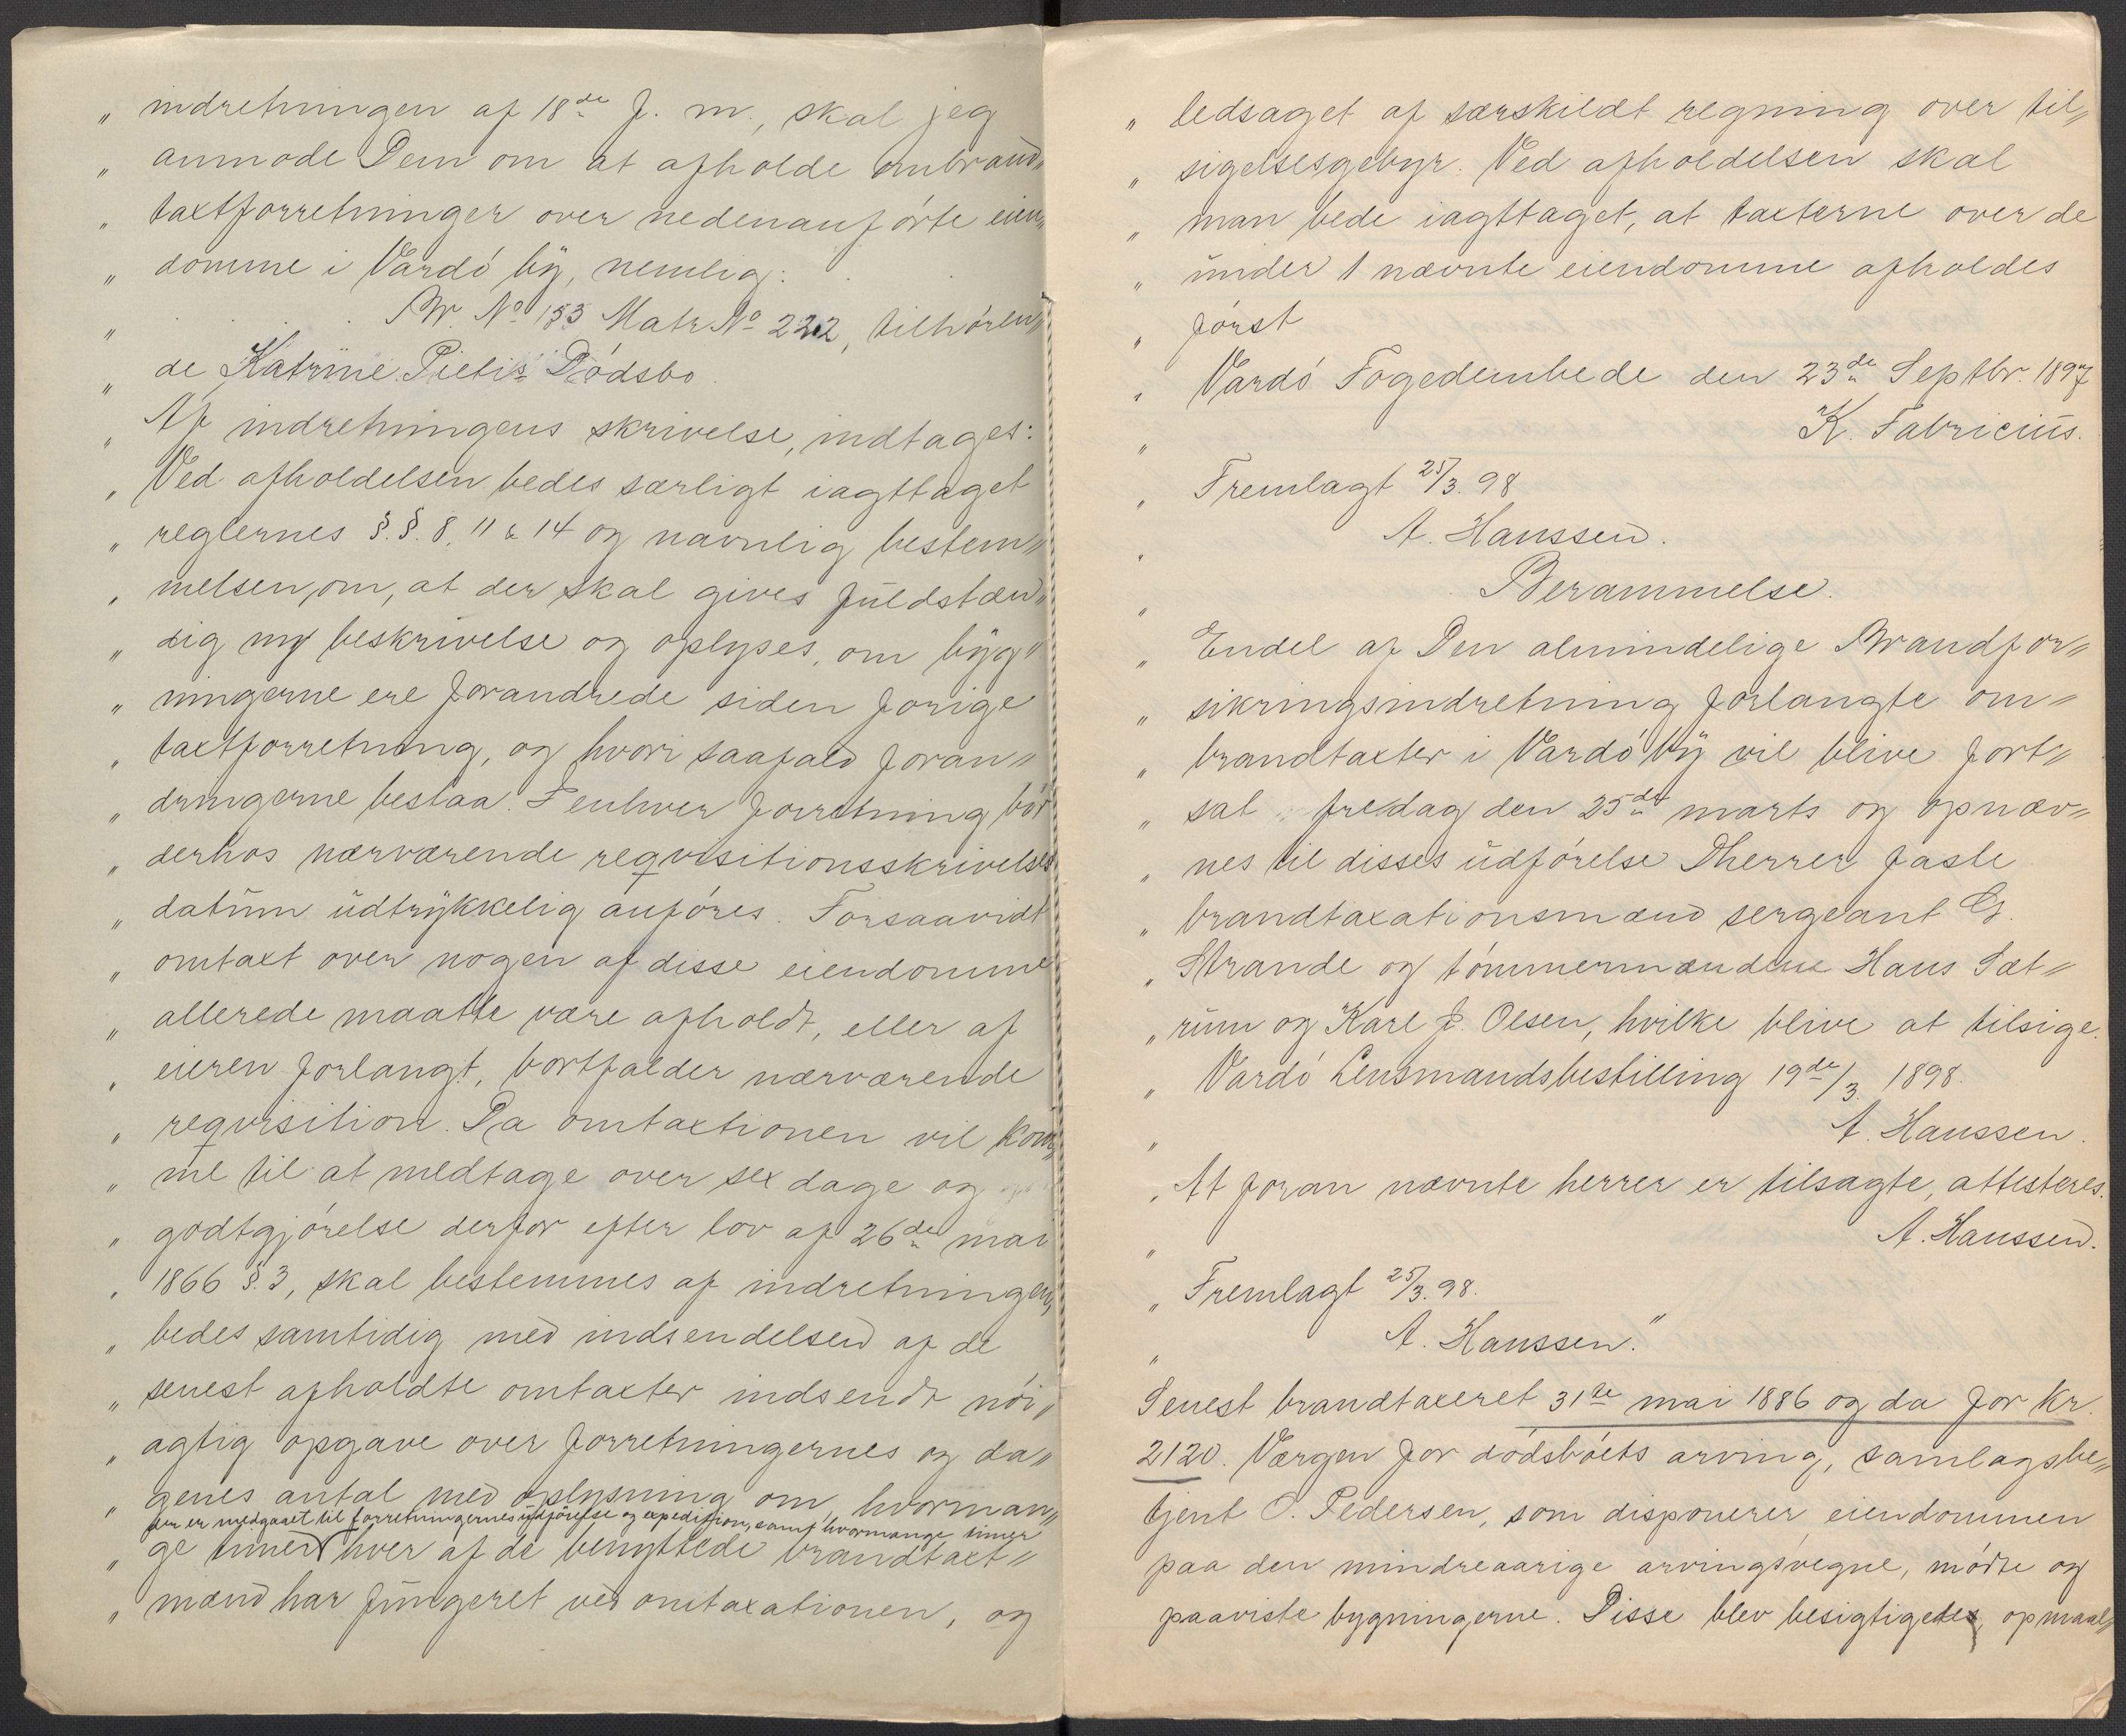 " indretningen af 18de f. m., skal jeg
" anmode Dem om at afholde ombrand"
" taxtforretninger over nedenanførte eien"
" domme i Vardø by, nemlig:
" Br. No 153 Matr No 222, tilhøren"
" de Katrine Pietis Dødsbo.
" Af indretningens skrivelse, indtages:
" Ved afholdelsen bedes særligt iagttaget
" reglernes §.§. 8, 11 & 14 og navnlig bestem"
" melsen, om, at der skal gives fuldstæn"
" dig ny beskrivelse og oplyses, om byg"
" ningerne ere forandrede siden forige
" taxtforretning, og hvori saafald foran"
" dringerne bestaa. I enhver forretning bør
" derhos nærværende reqvisitionsskrivelses
" datum udtrykkelig anføres. Forsaavidt
" omtaxt over nogen af disse eiendomme
" allerede maatte være afholdt, eller af
" eieren forlangt, bortfalder nærværende
" reqvisition. Da omtaxtionen vil kom"
" me til at medtage over sex dage og
" godtgjørelse derfor efter lov af 26de mai
" 1866 §. 3, skal bestemmes af indretningen,
" bedes samtidig med indsendelsen af de
" senest afholdte omtaxter indsendt nøi"
" agtig opgave over forretningernes og da"
" genes antal med oplysning om, hvorman"
der er medgaaet til forretningernes udførelse og expedition, samt hvormange timer
" ge timer hver af de benyttede brandtaxt"
" mænd har fungeret ved omtaxationen, og
" ledsaget af særskildt regning over til"
" sigelsesgebyr. Ved afholdelsen skal
" man bede iagttaget, at taxterne over de
" under 1 nævnte eiendomme afholdes
" først
" Vardø Fogedembede den 23de Septbr. 1897
" K. Fabricius.
" Fremlagt 25/3. 98
" A. Hanssen.
" Berammelse.
" Endel af Den almindelige Brandfor"
" sikringsindretning forlangte om"
" brandtaxter i Vardø by vil blive fort"
" sat fredag den 25de marts og opnæv"
" nes til disses udførelse Dherrer faste
" brandtaxationsmænd sergeant G.
" Strande og tømmermændene Hans Sæt"
" rum og Karl J. Olsen, hvilke blive at tilsige.
" Vardø Lensmandsbestilling 19de/3. 1898.
" A. Hanssen.
" At foran nævnte herrer er tilsagte, attesteres.
" A. Hanssen.
" Fremlagt 25/3. 98.
" A. Hanssen."
Senest brandtaxeret 31te mai 1886 og da for kr.
2120. Værgen for dødsboets arving, samlagsbe"
tjent O. Pedersen, som disponerer eiendommen
paa den mindreaarige arvings vegne, mødte og
paaviste bygningerne. Disse blev besigtigede, opmaal"